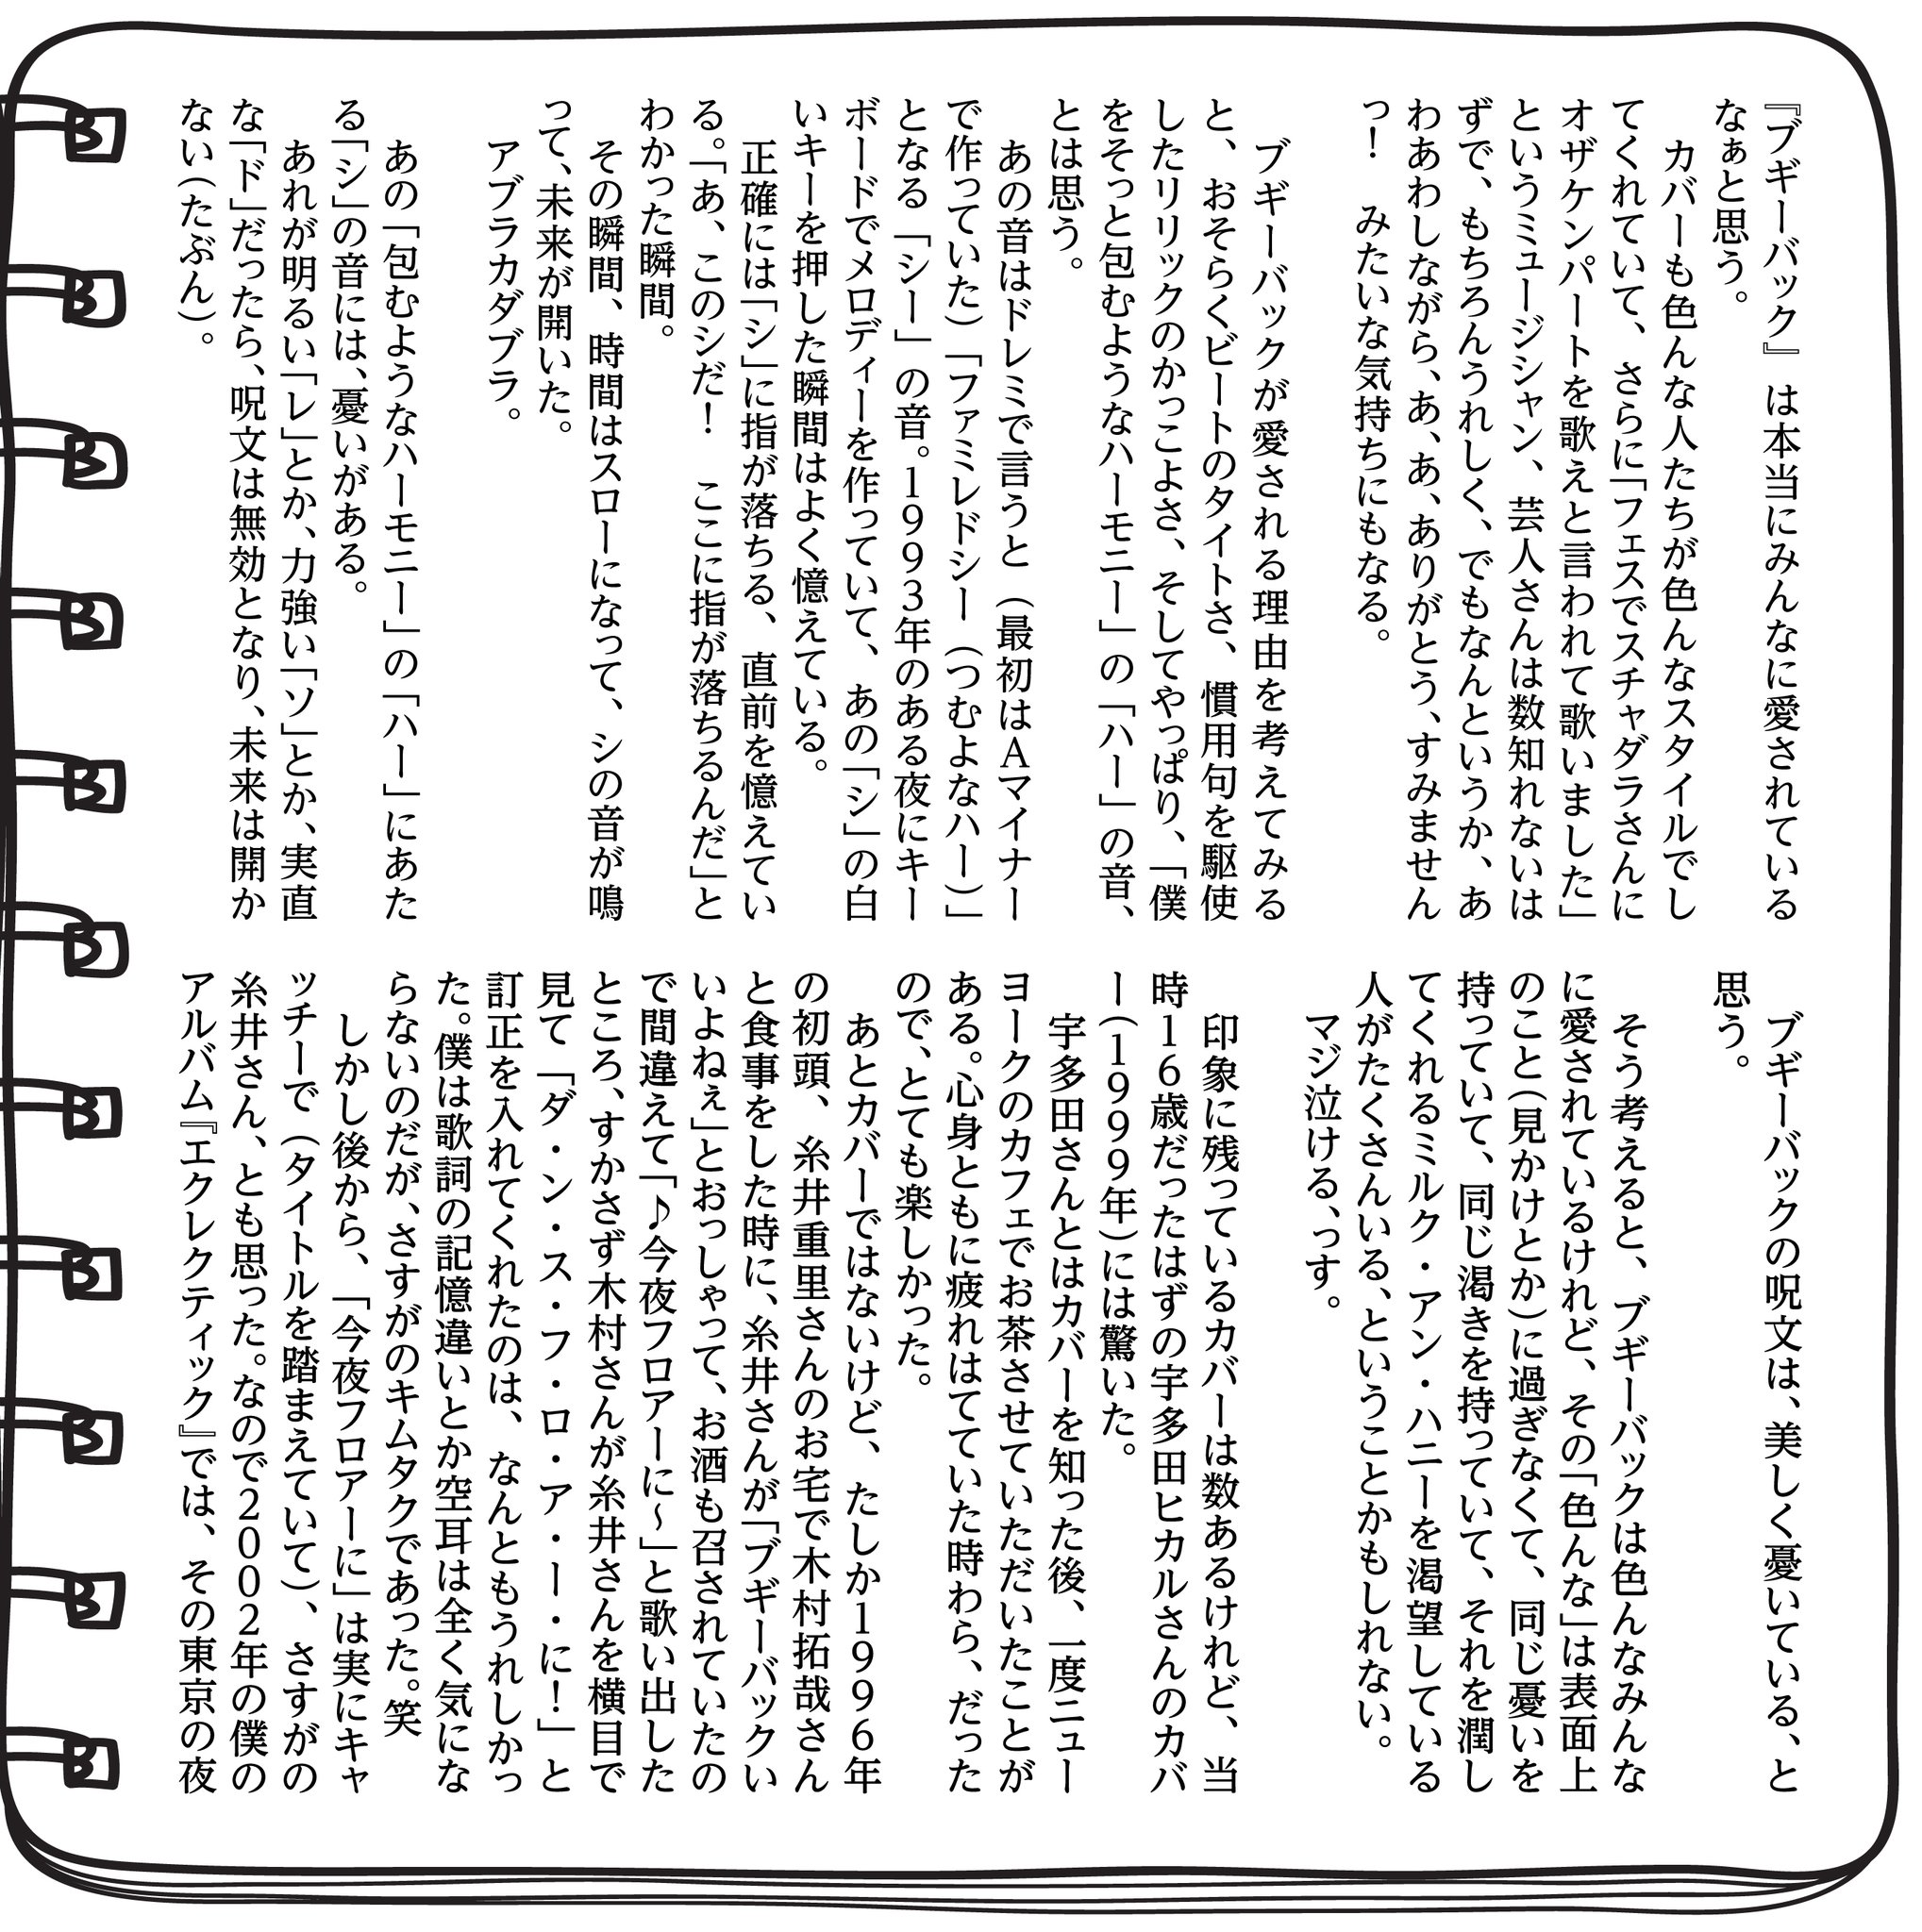 『ブギーバック』は本当にみんなに愛されている
なぁと思う。
　カバーも色んな人たちが色んなスタイルでし
てくれていて、さらに「フェスでスチャダラさんに
オザケンパートを歌えと言われて歌いました」
というミュージシャン、芸人さんは数知れないは
ずで、もちろんうれしく、でもなんというか、あ
わあわしながら、あ、あ、ありがとう、すみません
っ！　みたいな気持ちにもなる。
　ブギーバックが愛される理由を考えてみる
と、おそらくビートのタイトさ、慣用句を駆使
したリリックのかっこよさ、そしてやっぱり、「僕
をそっと包むようなハーモニー」の「ハー」の音、
とは思う。
　あの音はドレミで言うと（最初はＡマイナー
で作っていた）「ファミレドシー（つむよなハー）」
となる「シー」の音。１９９３年のある夜にキー
ボードでメロディーを作っていて、あの「シ」の白
いキーを押した瞬間はよく憶えている。
　正確には「シ」に指が落ちる、直前を憶えてい
る。「あ、このシだ！　ここに指が落ちるんだ」と
わかった瞬間。
　その瞬間、時間はスローになって、シの音が鳴
って、未来が開いた。
　アブラカダブラ。
　あの「包むようなハーモニー」の「ハー」にあた
る「シ」の音には、憂いがある。
　あれが明るい「レ」とか、力強い「ソ」とか、実直
な「ド」だったら、呪文は無効となり、未来は開か
ない（たぶん）。
　ブギーバックの呪文は、美しく憂いている、と
思う。
　そう考えると、ブギーバックは色んなみんな
に愛されているけれど、その「色んな」は表面上
のこと（見かけとか）に過ぎなくて、同じ憂いを
持っていて、同じ渇きを持っていて、それを潤し
てくれるミルク・アン・ハニーを渇望している
人がたくさんいる、ということかもしれない。
　マジ泣ける、っす。
　印象に残っているカバーは数あるけれど、当
時１６歳だったはずの宇多田ヒカルさんのカバ
ー（１９９９年）には驚いた。
　宇多田さんとはカバーを知った後、一度ニュー
ヨークのカフェでお茶させていただいたことが
ある。心身ともに疲れはてていた時わら、だった
ので、とても楽しかった。
　あとカバーではないけど、たしか１９９６年
の初頭、糸井重里さんのお宅で木村拓哉さん
と食事をした時に、糸井さんが「ブギーバックい
いよねぇ」とおっしゃって、お酒も召されていたの
で間違えて「♪今夜フロアーに〜」と歌い出した
ところ、すかさず木村さんが糸井さんを横目で
見て「ダ・ン・ス・フ・ロ・ア・ー・に！」と
訂正を入れてくれたのは、なんともうれしかっ
た。僕は歌詞の記憶違いとか空耳は全く気にな
らないのだが、さすがのキムタクであった。笑
　しかし後から、「今夜フロアーに」は実にキャ
ッチーで（タイトルを踏まえていて）、さすがの
糸井さん、とも思った。なので２００２年の僕の
アルバム『エクレクティック』では、その東京の夜